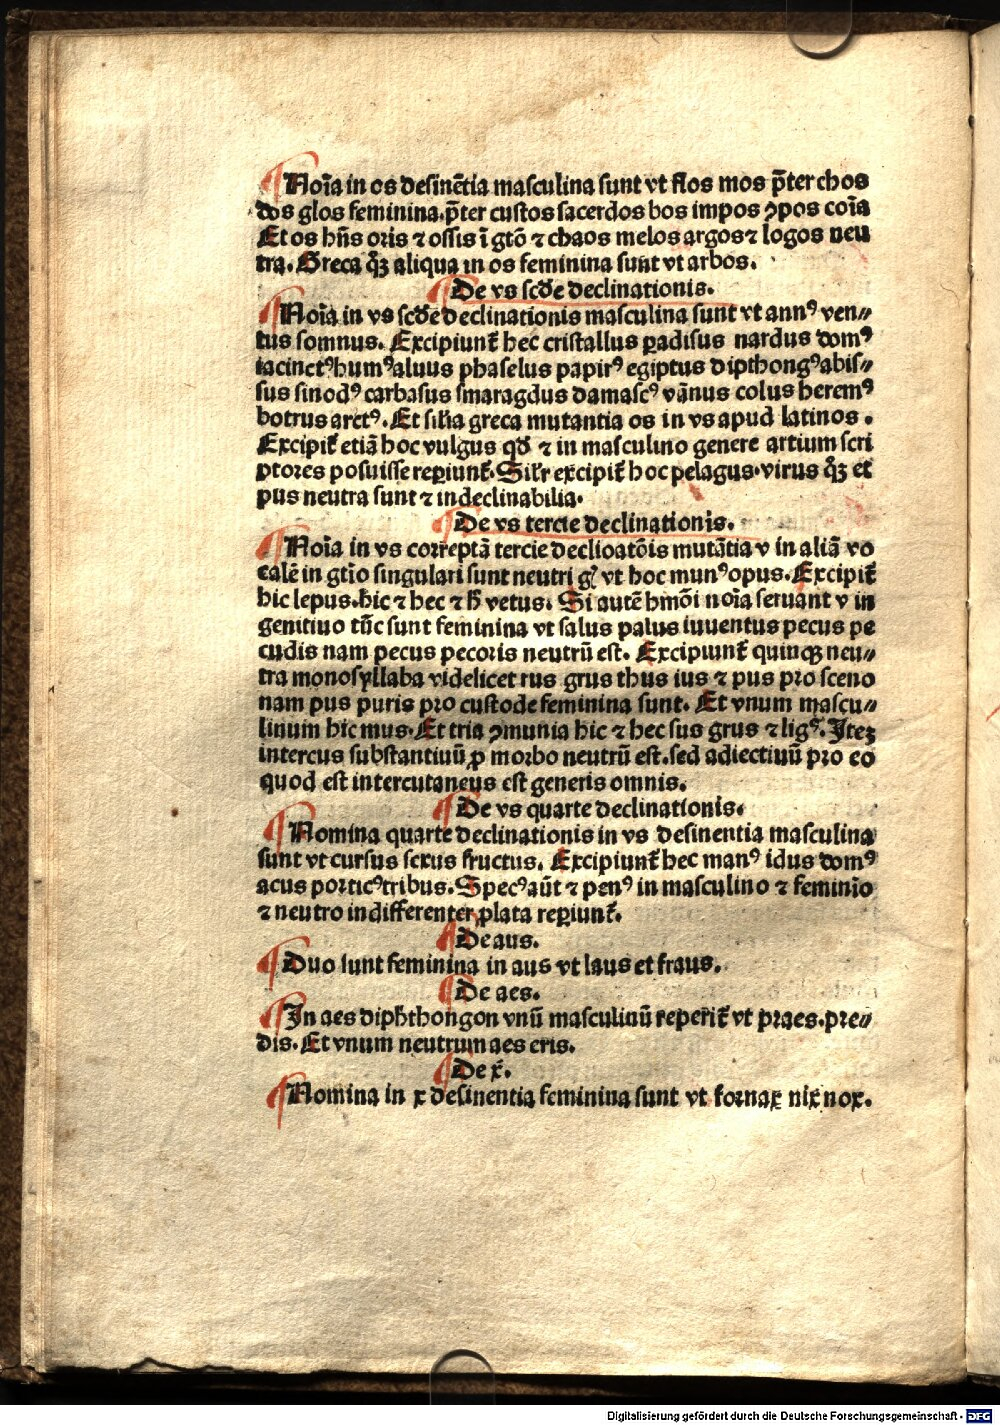 Noīa in os desinētia masculina sunt vt flos mos p̄ter chos
dos glos feminina. p̄ter custos sacerdos bos impos ꝯpos coīa
Et os hn̄s oris ⁊ ossis ī gtō ⁊ chaos melos argos ⁊ logos neu
tra. Greca qꝫ aliqua in os feminina sunt vt arbos.
De vs scd̄e declinationis.
Noīa in vs scd̄e declinationis masculina sunt vt annꝰ ven⸗
tus somnus. Excipiunt᷑ hec cristallus ꝑadisus nardus domꝰ
iacinctꝰ humꝰ aluus phaselus papirꝰ egiptus dipthongꝰ abis⸗
sus sinodꝰ carbasus smaragdus damascꝰ vānus colus heremꝰ
botrus arctꝰ. Et sil̄ia greca mutantia os in vs apud latinos.
Excipit᷑ etiā hoc vulgus qd̄ ⁊ in masculino genere artium scri
ptores posuisse reꝑiunt᷑. Sil̄r excipit᷑ hoc pelagus. virus qꝫ et
pus neutra sunt ⁊ indeclinabilia.
De vs tercie declinationis.
Noīa in vs correptā tercie declioatōis mutātia v in aliā vo
calē in gtīo singulari sunt neutri gꝰ vt hoc munꝰ opus. Excipit᷑
hic lepus. hic ⁊ hec ⁊ h̄ vetus. Si autē hmōi noīa seruant v in
genitiuo tūc sunt feminina vt salus palus iuuentus pecus pe
cudis nam pecus pecoris neutrū est. Excipiunt᷑ quinqꝫ neu⸗
tra monosyllaba videlicet rus grus thus ius ⁊ pus pro sceno
nam pus puris pro custode feminina sunt. Et vnum mascu⸗
linum hic mus. Et tria ꝯmunia hic ⁊ hec sus grus ⁊ ligꝰ. Itez
intercus substantiuū ꝓ morbo neutrū est. sed adiectiuū pro eo
quod est intercutaneus est generis omnis.
De vs quarte declinationis.
Nomina quarte declinationis in vs desinentia masculina
sunt vt cursus sexus fructus. Excipiunt᷑ hec manꝰ idus domꝰ
acus porticꝰ tribus. Specꝰ aūt ⁊ penꝰ in masculino ⁊ feminīo
⁊ neutro indifferenter ꝓlata reꝑiunt᷑.
De aus.
Duo sunt feminina in aus vt laus et fraus.
De aes.
In aes diphthongon vnū masculinū reperit᷑ vt praes. pre⸗
dis. Et vnum neutrum aes eris.
De x̄.
Nomina in x desinentia feminina sunt vt fornax nix nox.
Digitalisierung gefördert durch die Deutsche Forschungsgemeinschaft - DFG